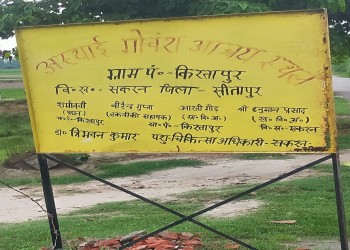 अस्थाई गोवंश आश्रय स्थल
ग्राम पं०-किरतापुर
वि० ख०- सकरन जिला- सीतापुर
वीरेन्द्र गुप्ता आरती गौड़ श्री हनुमान प्रसाद
(तकनीकी सहायक) (ग्रा० वि० अ०) (ख० वि० अ०)
ग्रा० पं०- किरतापुर वि० ख०- सकरन
डा० त्रिभुवन कुमार पशु चिकित्सा अधिकारी-सकरन